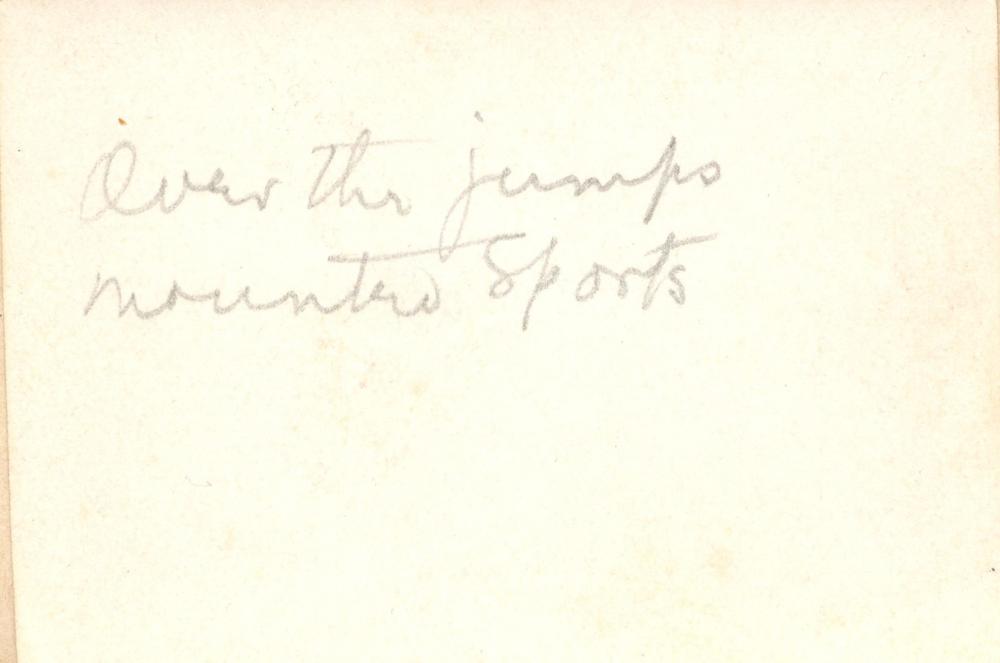 Over the jumps
mounted Sports